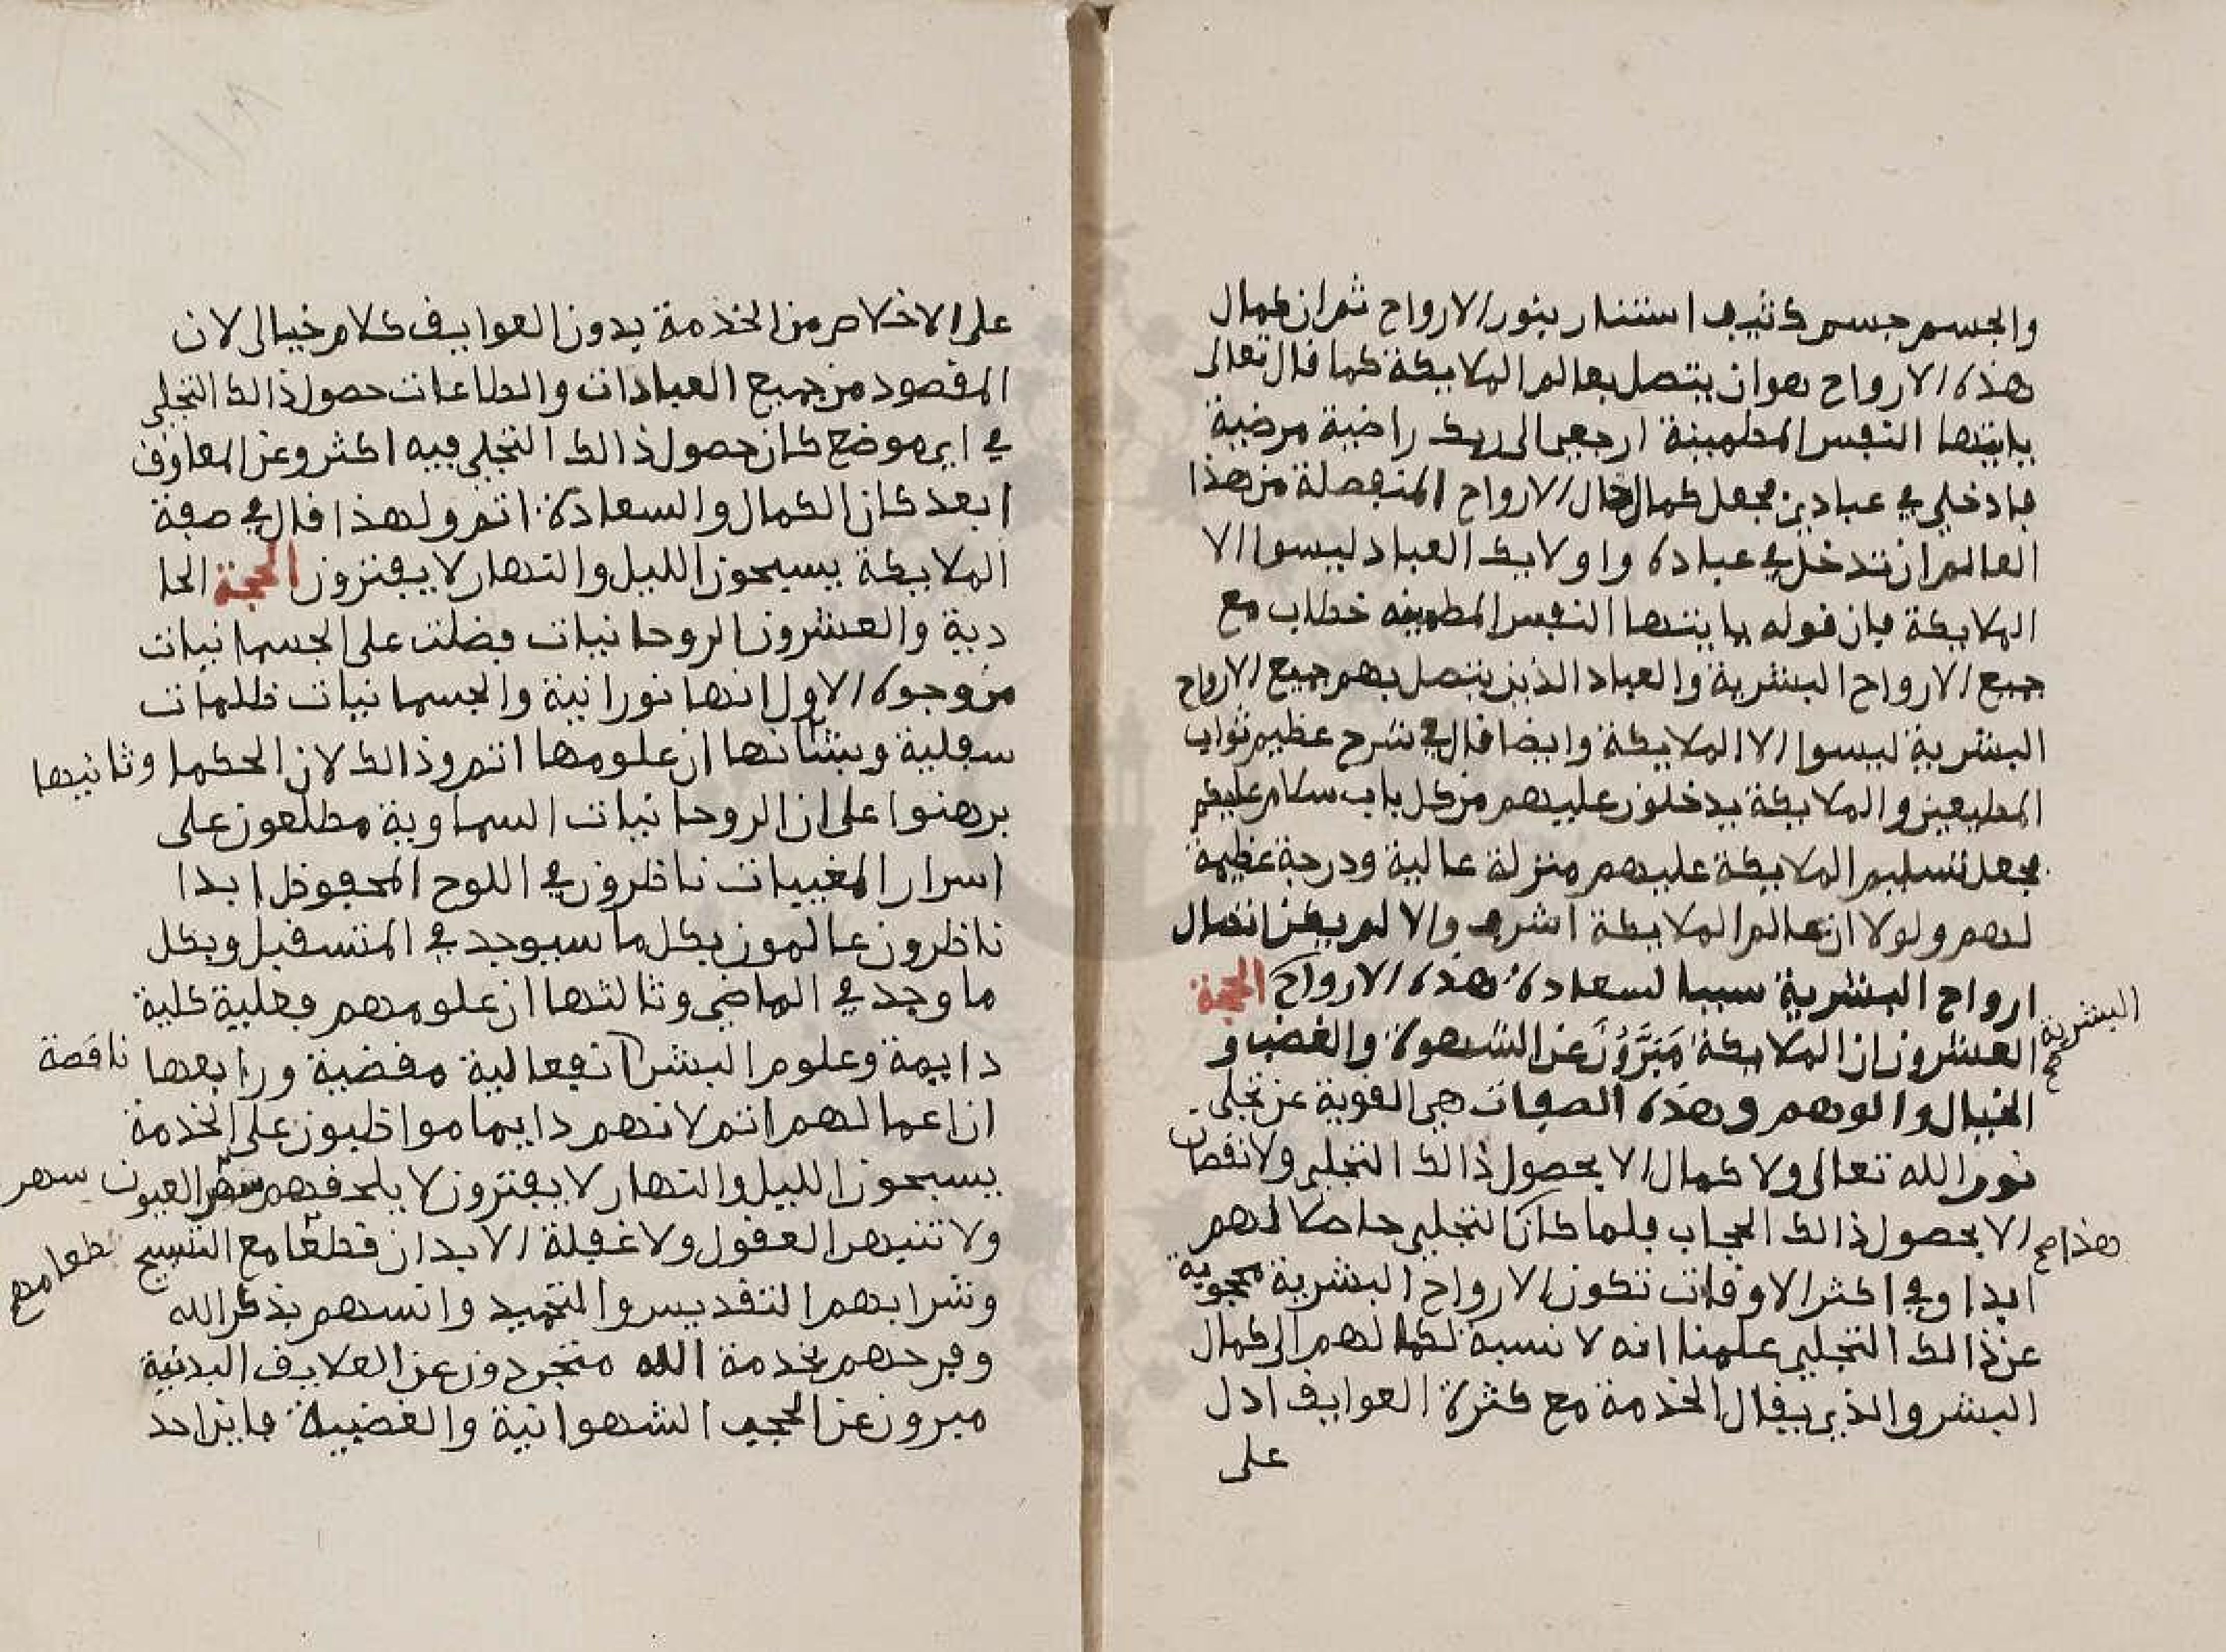 والجسم جسم كثيف استنار بنور الارواح ثم ان كمال
هذه الارواح هو ان يتصل بعالم الملايكة كما قال تعالى
يايتها النفس المطمينة ارجعي الى ربك راضية مرضية
فادخلي في عبادي فجعل كمال حال الارواح المنفصلة من هذا
العالم ان تدخل في عباده واولايك العباد ليسوا الا
الملايكة فان قوله يايتها النفس المطمينه خطاب مع
جميع الارواح البشرية والعباد الذين يتصل بهم جميع الارواح
البشرية ليسوا الا الملايكة وايضا قال في شرح عظيم ثواب
المطيعين والملايكة يدخلون عليهم من كل باب سلام عليكم
فجعل تسليم الملايكة عليهم منزلة عالية ودرجة عظيمة
لهم ولولا ان عالم الملايكة اشرف والا لم يكن اتصال
ارواح البشرية سببا لسعادة هذه الارواح الحجة
البشرية صح
العشرون ان الملايكة مَبَرَّوُنَ عن الشهوة والغضب و
الخيال والوهم وهذه الصفات هي القوية عن تجلى
نور الله تعالى ولا كمال الا بحصول ذالك التجلي ولا نقصان
الا بحصول ذالك الحجاب فلما كان التجلي حاصلا لهم
هذا صح
ابدا وفي اكثر الاوقات تكون الارواح البشرية محجوبة
عن ذالك التجلي علمنا انه لا نسبة لكمالهم الى كمال
البشر والذي يقال الخدمة مع كثرة العوايق ادل
على
على الاخلاص من الخذمة بدون العوايق كلام خيالى لان
المقصود من جميع العبادات والطاعات حصول ذالك التجلي
في اي موضع كان حصول ذالك التجلي فيه اكثر وعن المعاوق
ابعد كان الكمال والسعادة اتم ولهذا قال في صفة
الملايكة يسبحون الليل والنهار لا يفترون الحجة الحا
دية والعشرون الروحانيات فضلت على الجسمانيات
من وجوه الاول انها نورانية والجسمانيات ظلمات
سفلية وبشانها ان علومها اتم وذالك لان الحكما وثانيها
برهنوا على ان الروحانيات السماوية مطلعون على
اسرار المغيبات ناظرون في اللوح المحفوظ ابدا
ناظرون عالمون بكل ما سيوجد في المتسقبل وبكل
ما وجد في الماضي وثالثها ان علومهم فعلية كلية
دايمة وعلوم البشر انفعالية مفضية ورابعها ناقصة
ان اعمالهم اتم لانهم دايما مواظبون على الخذمة
يسبحون الليل والنهار لا يفترون لا يلحقهم سهر العيون سهر
ولا تنيهم العقول ولا غفلة الابدان قطعا مع التسبيح
وشرابهم التقديس والتحميد وانسهم بذكر الله
وفرحهم بخدمة الله متجردون عن العلايق البدنية
مبرون عن الحجب الشهوانية والغضبية فاين احد